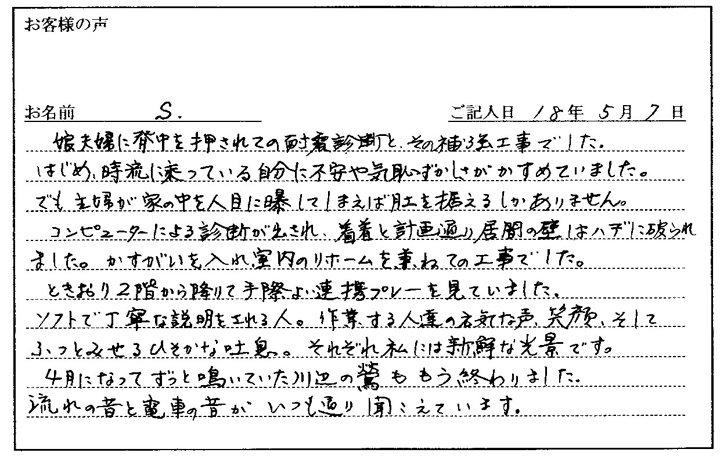 お客様の声
お名前 S. ご記入日 18年 5月 7日
娘夫婦に背中を押されての耐震診断と、その補強工事でした。
はじめ、時流に乗っている自分に不安や気恥ずかしさがかすめていました。
でも主婦が家の中を人目に曝してしまえば肚を据えるしかありません。
コンピューターによる診断が出され、着着と計画通り居間の壁はハデに破られ
ました。かすがいを入れ室内のリホームを兼ねての工事でした。
ときおり2階から降りて手際よい連携プレーを見ていました。
ソフトで丁寧な説明をされる人。作業する人達の元気な声、笑顔、そして
ふっとみせるひそかな吐息。それぞれ私には新鮮な光景です。
4月になってずっと鳴いていた川辺の鶯ももう終わりました。
流れの音と電車の音がいつも通り聞こえています。